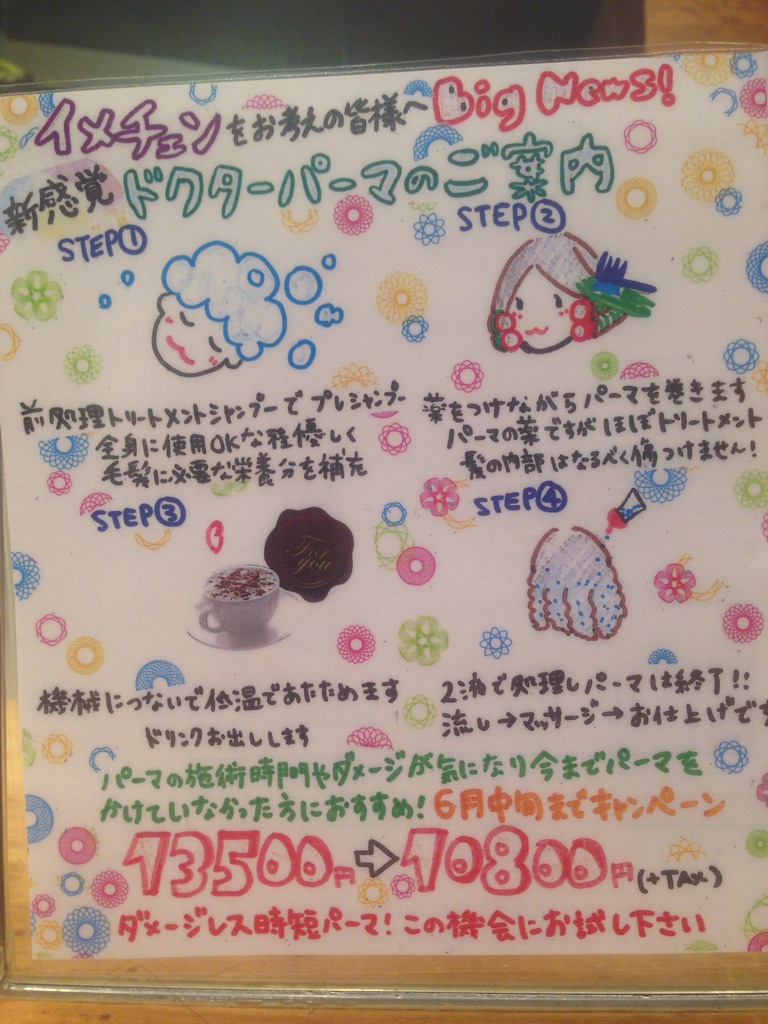 イメチェンをお考えの皆様へ Big News!
新感覚 ドクターパーマのご案内
STEP①
前処理トリートメントシャンプーでプレシャンプー
全身に使用OKな程優しく
毛髪に必要な栄養分を補充
STEP②
薬をつけながらパーマを巻きます
パーマの薬ですがほぼトリートメント
髪の内部はなるべく傷つけません!
STEP③
For you
機械につないで低温であたためます
ドリンクお出しします
STEP④
2液で処理しパーマは終了!!
流し→マッサージ→お仕上げです
パーマの施術時間やダメージが気になり今までパーマを
かけていなかった方におすすめ! 6月中旬までキャンペーン
13500円→10800円(+TAX)
ダメージレス時短パーマ!この機会にお試し下さい